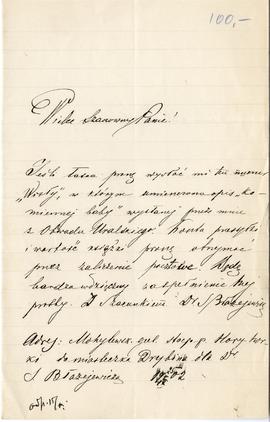 100,-
Wielce Szanowny Panie!
Jeśli łaska proszę wysłać mi ten numer
„Wisły", w którym umieszczono opis „ka-
miennej baby" wysłanej przez mnie
z Obwodu Uralskiego. Koszta przesyłki
i wartość książki proszę otrzymać
przez zaliczenie pocztowe. Będę
bardzo wdzięczny za spełnienie tej
prośby. Z szacunkiem Dr S Błażejewicz
Adres: Mohylewsk. gub. Horyp. Hory-horki
do miasteczka Drybina dla Dr
S Błażejewicza